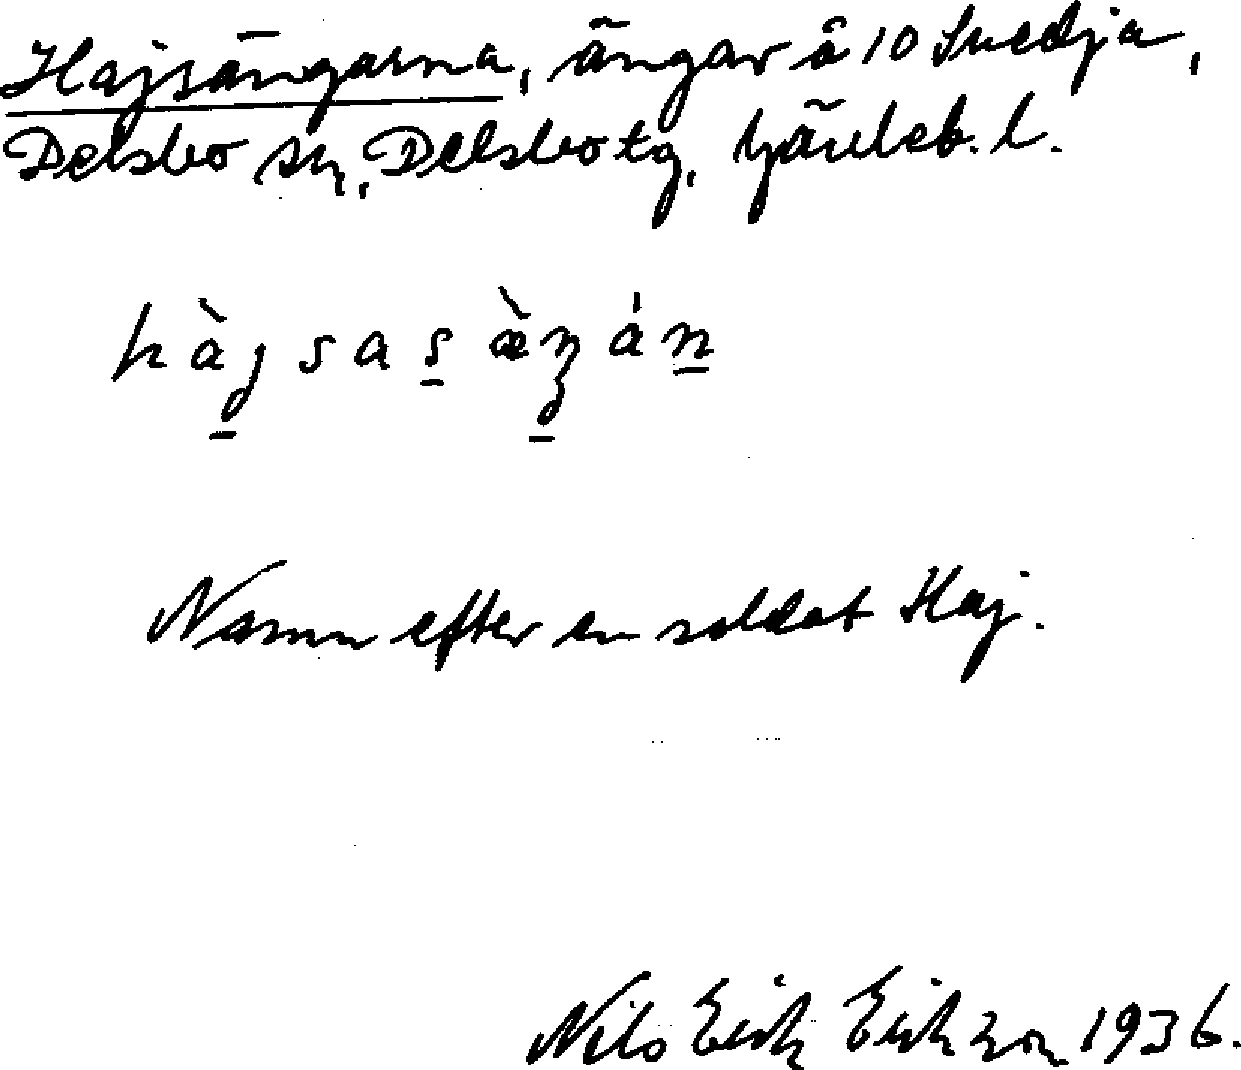 Hajsängarna, ängar å 10 Svedja,
Delsbo sn, Delsbo tg, Gävleb. l.
Namn efter en soldat Haj.
Nils Erik Erikson 1936.